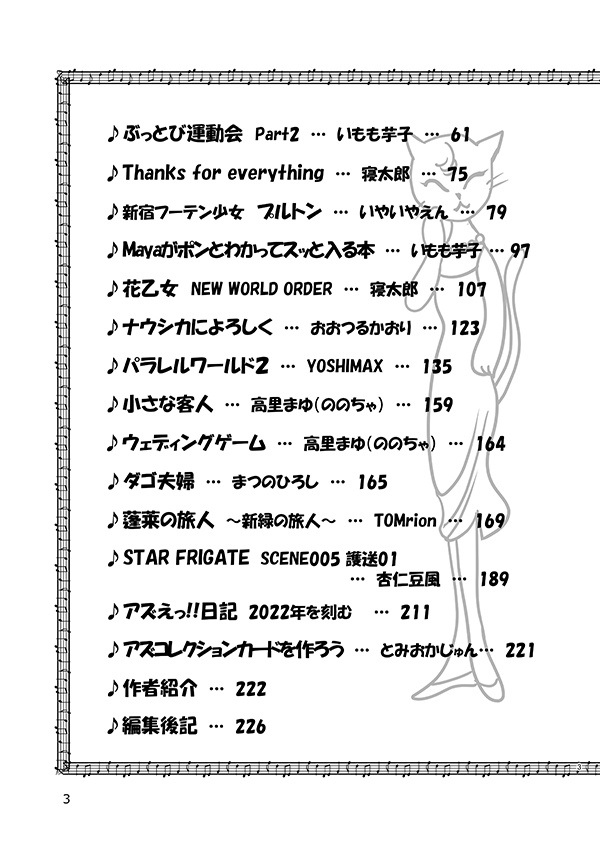 ♪ぶっとび運動会 Part2 … いもも芋子 … 61
♪Thanks for everything … 寝太郎 … 75
♪新宿フーテン少女 ブルトン … いやいやえん … 79
♪Mayaがポンとわかってスッと入る本 … いもも芋子 … 97
♪花乙女 NEW WORLD ORDER … 寝太郎 … 107
♪ナウシカによろしく … おおつるかおり … 123
♪パラレルワールド2 … YOSHIMAX … 135
♪小さな客人 … 高里まゆ(ののちゃ) … 159
♪ウェディングゲーム … 高里まゆ(ののちゃ) … 164
♪ダゴ夫婦 … まつのひろし … 165
♪蓬莱の旅人 ～新緑の旅人～ … TOMrion … 169
♪STAR FRIGATE SCENE005 護送01
… 杏仁豆風 … 189
♪アズえっ!!日記 2022年を刻む … 211
♪アズコレクションカードを作ろう … とみおかじゅん… 221
♪作者紹介 … 222
♪編集後記 … 226
3
3